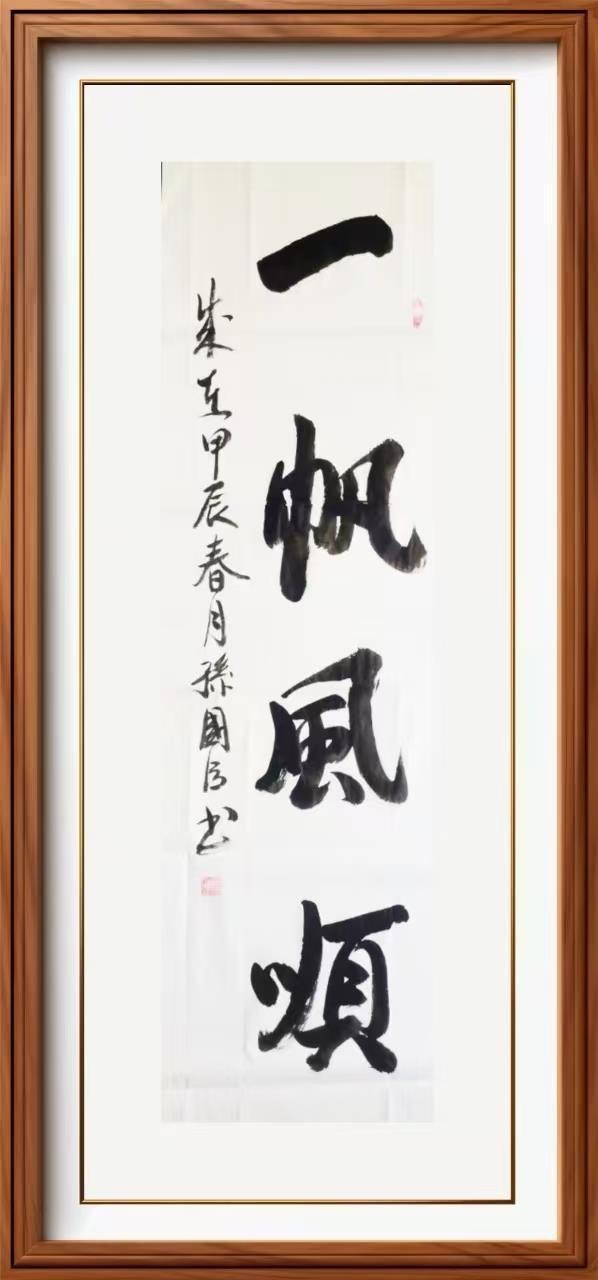 一帆風順
歲在甲辰春月孫國 书